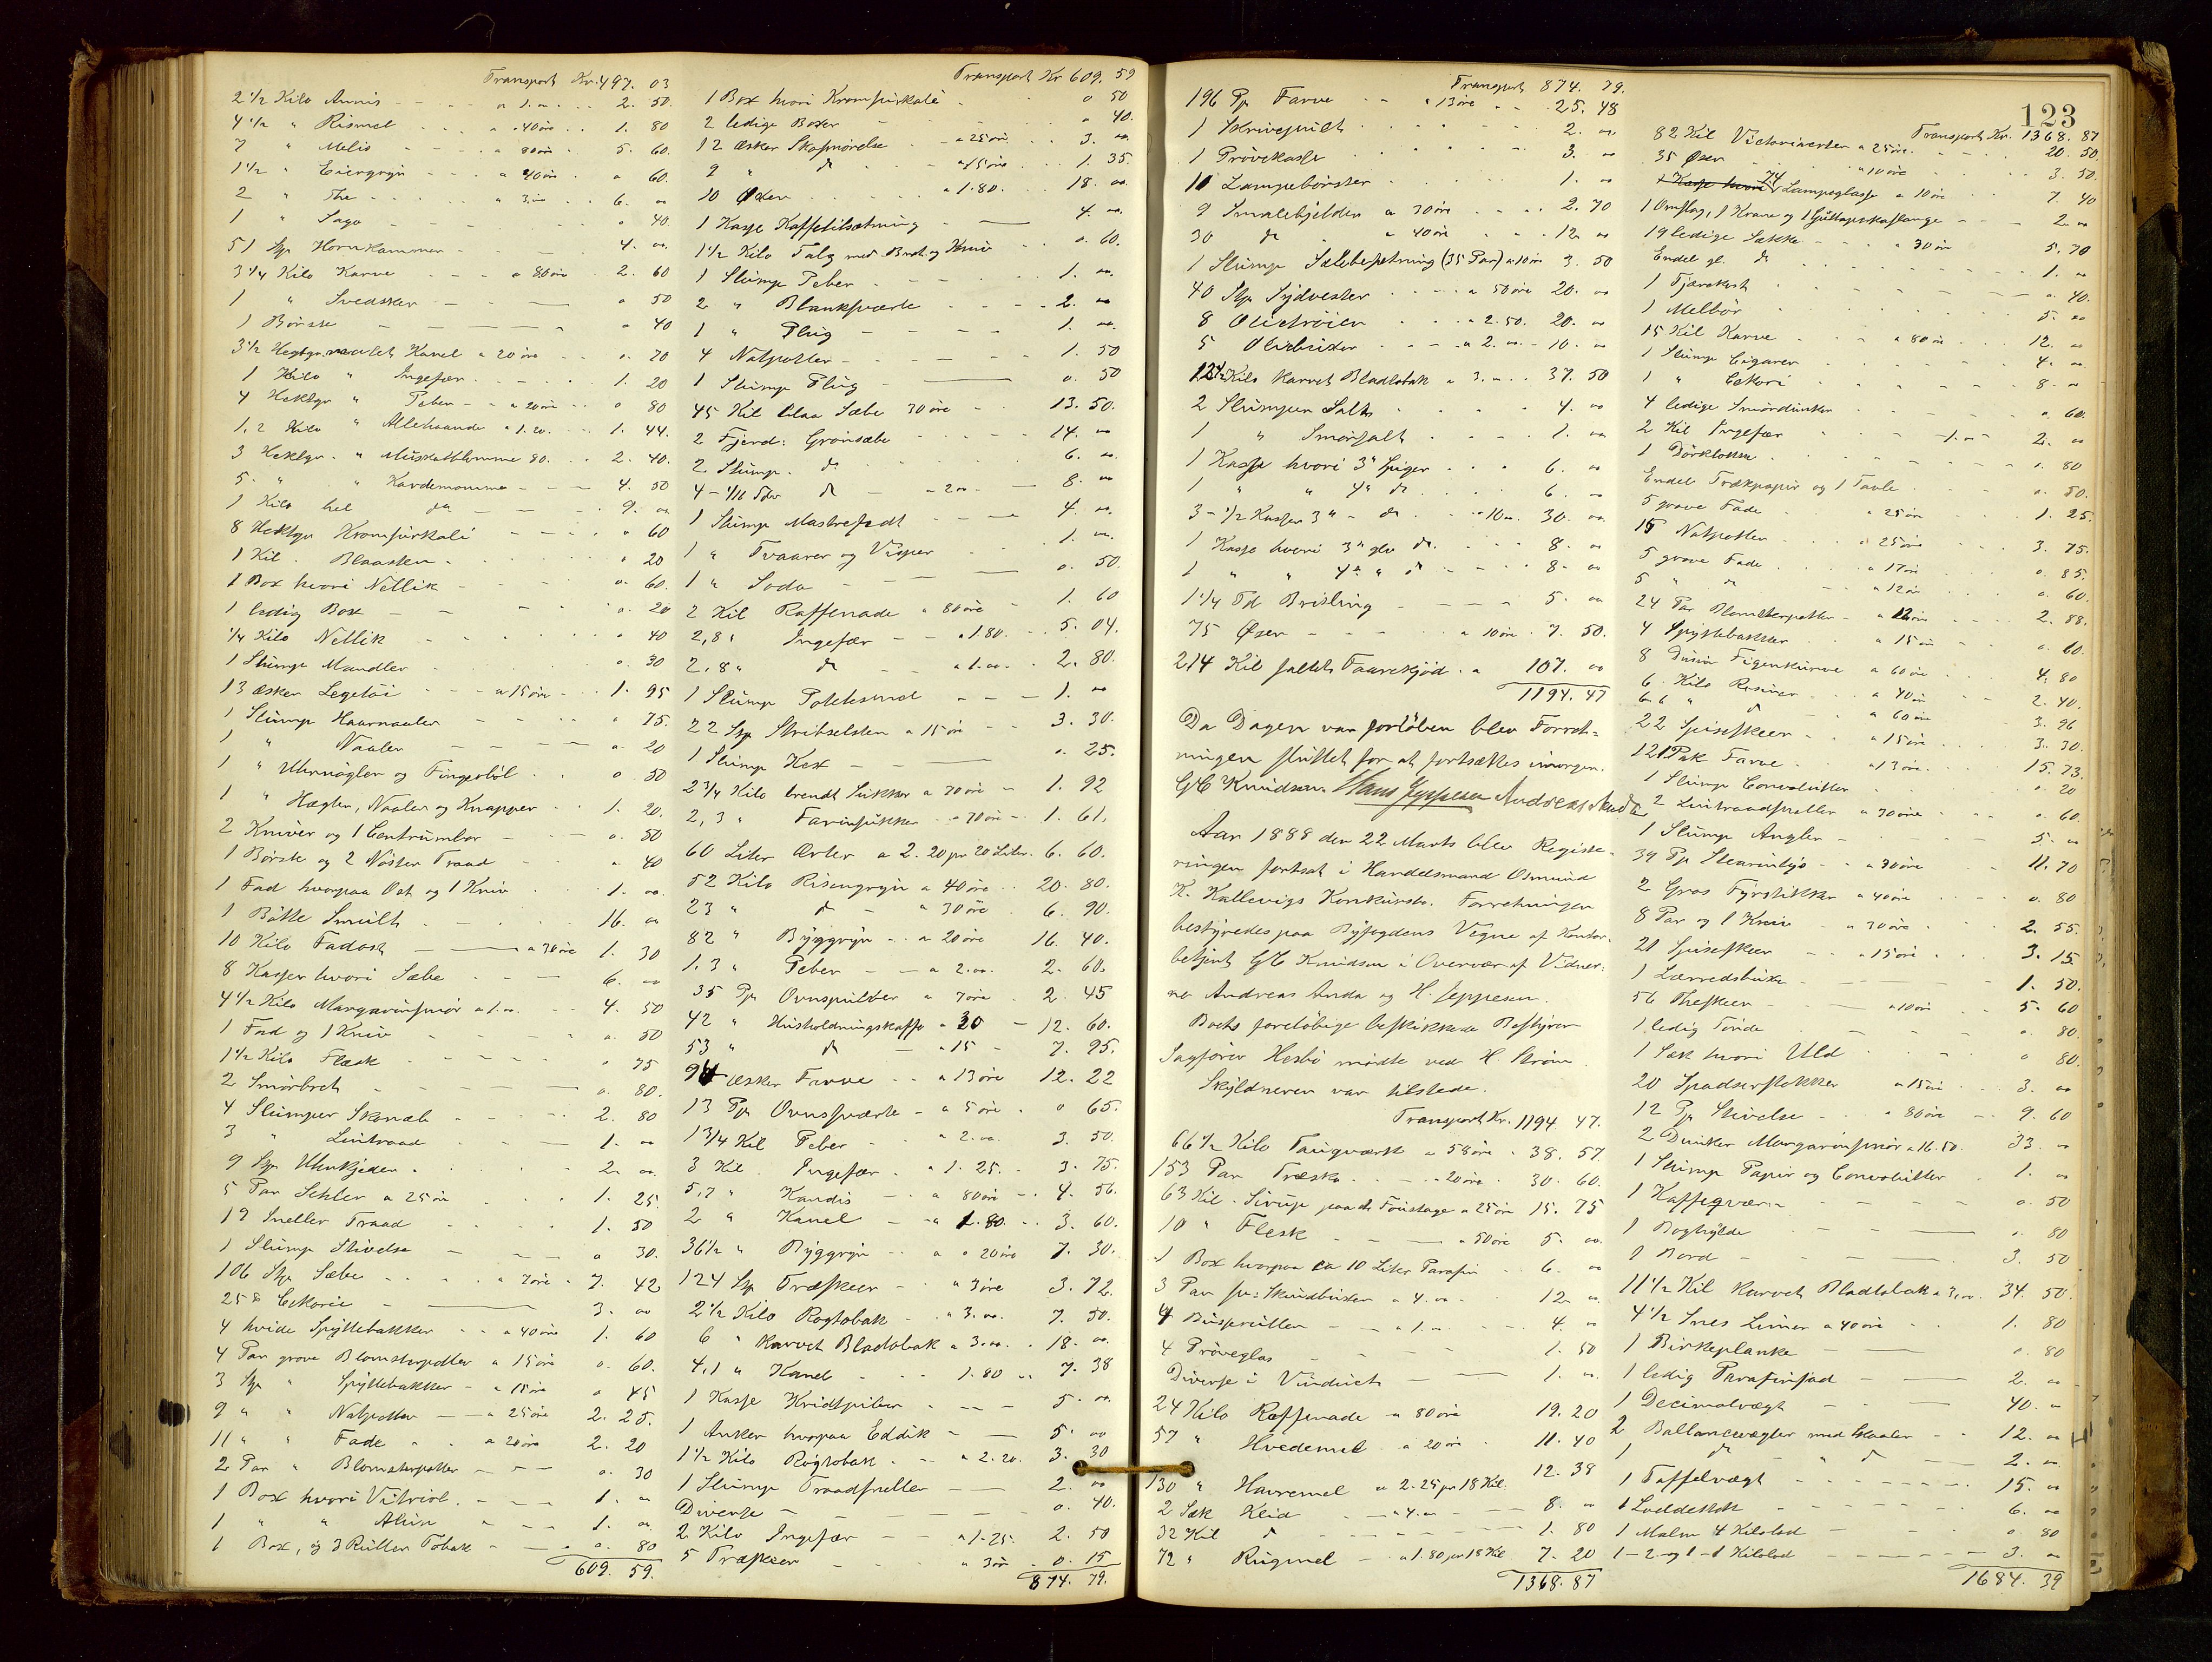 Transport Kr. 497. 03
2 1/2 Kilo Annis - - - a 1.00 . . 2. 50.
4 1/2 " Rismel . . . a 40 öre . . 1. 80
7 " Melis - - - a 80 öre . 5. 60.
1 1/2 " Eiergryn - - a 40 öre . 0 60.
2 " The - - - a 3.00 . . 6. 00
1 " Sago - 0 40
51 Stp Hornkammer - - 4. 00.
3 1/4 Kilo Karve - - - a 80 öre . 2. 60
1 " Svedsker - - 0 50
1 Börste - - 0 40
3 1/2 Hektgr. maalet Kanel a 20 öre - - 0. 70
1 Kilo " Ingefær . - - 1. 20
4 Hektgr " Peber - - a 20 öre - - 0 80
1,2 Kilo " Allehaande a 1.20. . . 1. 44.
3 Hektgr. " Muskatblomme 80. . . 2. 40.
5. " " Kardemomme - - - 4. 50
1 Kilo hel do - - 9. 00
8 Hektgr Kromsurkali - - - 0 60
1 Kil. Blaasten - - - 0 20
1 Box hvori Nellik - - - 0. 60.
1 ledig Box - - - 0. 20
1/4 Kilo Nellik - - - 0 40
1 Slump Mandler - - - 0. 30
13 æsker Legetöi - - - a 15 öre - - 1. 95
1 Slump Haarnaaler - - - 0 75.
1 " Naaler - - - 0. 20
1 " Uhrnögler og Fingerböl . . 0 50
1 " Hægter, Naaler og Knapper - - 1. 20.
2 Kniver og 1 Centrumbor - - - 0. 50
1 Börste og 2 Nöster Traad - - 0. 40
1 Fad hvorpaa Ost og 1 Kniv . . 1. 00.
1 Bötte Smult . - - 16. 00
10 Kilo Fadost - - a 30 öre 1. 30
8 Kasser hvori Sæbe - - - 6. 00
4 1/2 Kilo Margarinsmör a 1.00. - - 4. 50
1 Fad og 1 Kniv - - - 0. 50
1 1/2 Kilo Flæsk - - - 0 75
2 Smörbret - - - 0. 80.
4 Slumper Skonæb - - - 2. 80
3 " Lintraad - - - 1. 00
9 Stp. Uhrkjeder . - - - 2. 00.
5 Par Sehler a 25 öre . . . 1. 25.
19 Sneller Traad - - - 1. 50
1 Slump Stivelse - - - 0 30.
106 Stp Sæbe - - - a 7 öre . 7. 42
25 " Cekorie - - 3. 00
4 hvide Spyttebakker - - a 40 öre 1. 60
4 Par grove Blomsterpotter a 15 öre 0. 60.
3 Stp " Spyttebakker - a 15 öre 0 45
9 " " Natpotter - - a 25 öre 2. 25.
11 " " Fade - - a 20 öre 2. 20
2 Par " Blomsterpotter - - - 0. 30
1 Box hvori Vitriol. - - - 1. 00
1 " " Alun - - - 1. 00.
1 Box, og 3 Ruller Tobak - - 0. 80
609. 59.
Transport Kr 609. 59
1 Box hvori Kromsurkali . 0 50
2 ledige Boxer - - 0 40.
12 æsker Skosmörelse . - a 25 öre . . 3. 00.
9 " do - a 15 öre . . 1. 35.
10 Öxer - - a 1.80. . . 18. 00
1 Kasse Kaffetilsætning - - 4. 00.
1 1/2 Kilo Talg med Bret og Kniv - - 0. 60.
1 Slump Peber - - - 1. 00.
2 " Blanksværte - - - 2. 00
1 " Plug - - - 1. 00.
4 Natpotter - - - 1. 50
1 Slump Plug - - 0. 50
45 Kil blaa Sæbe 30 öre - - 13. 50.
2 Fjerd: Grönsæbe - - - 14. 00
2 Slump. do - - 6. 00.
4 - 1/16 Tdr do - - 2 00 - 8. 00
1 Slump Mastrefedt - - - 4. 00.
1 " Tvaarer og Visper - - 1. 00.
1 " Soda - - - 0. 50.
2 Kil Raffenade a 80 öre - 1. 60
2,8 " Ingefær - - a 1.80. - - 5. 04.
2,8 " do - - a 1.00. . . 2. 80.
1 Slump Pottesund - - - 1. 00
22 Stp Stribselsten a 15 öre - - 3. 30.
1 Slump Kex - - 0. 25.
2 3/4 Kilo brendt Sukker a 70 öre - 1. 92
2,3 " Farinsukker - a 70 öre - 1. 61.
60 Liter Ærter a 2. 20 pr 20 Liter. 6. 60.
52 Kilo Risengryn a 40 öre . . 20. 80.
23 " do - a 30 öre . 6. 90.
82 " Byggryn - - a 20 öre 16. 40.
1,3 " Peber - - a 2.00. 2. 60.
35 Pp Ovnspulver a 7 öre . 2. 45
42 " Husholdningskaffe a 30 - 12. 60.
53 " do - a 15 - 7. 95.
94 æsker Farve - - a 13 öre 12. 22
13 Pp Ovnssværte - a 5 öre . 0 65.
1 3/4 Kil Peber - - a 2.00. 3. 50.
3 Kil. Ingefær - a 1.25. . 3. 75.
5,7 " Kandis - - a 80 öre - . 4. 56.
2 " Kanel - - a 1.80. . . 3. 60.
36 1/2 " Byggryn - - a 20 öre 7. 30.
124 Stp Træskeer - - a 3 öre 3. 72.
2 1/2 Kilo Rogtobak - . a 3.00. . 7. 50.
6 " karvet Bladtobak a 3.00. . 18. 00.
4,1 " Kanel - - - 1.80 - - 7. 38
1 Kasse Kridtpiber - - - 5. 00.
1 Anker hvorpaa Eddik - - 5. 00
1 1/2 Kilo Rögtobak - - a 2.20. 3. 30
1 Slump Traadsneller - - 2. 00
Diverse - - - 0. 40.
2 Kilo Ingefær - - a 1-25. 2. 50
5 Træskeer - - a 3 öre . 0. 15
874. 79.
123
Transport 874. 79.
196 Pp Farve - - a 13 öre - - 25. 48
1 Skrivepult - - - 2. 00.
1 Prövekasse - - - 3. 00
10 Lampebörster - - - 1. 00
9 Smalebjelder a 30 öre . . . 2. 70
30 do . a 40 öre . . . 12. 00
1 Slump Sælebesætning (35 Par) a 10 öre 3. 50
40 Stp Sydvester - - - a 50 öre 20. 00
8 Olietröier - - a 2.50. 20. 00
5 Oliebuxer - - - a 2.00. - 10. 00
12 1/2 Kilo karvet Bladtobak a 3.00 . . 37. 50
2 Slumper Salt - - - 4. 00
1 " Smörsalt - - - 1. 00
1 Kasse hvori 3" Spiger - - - 6. 00
1 " " 4" do - - - 6. 00
3 - 1/2 Kasser 3" - do . - a 10 00. 30. 00.
1 Kasse hvori 3" glv do. - - 8. 00
1 " " 4" " do - - - 8. 00
1 1/4 Td Brisling - - - 5. 00
75 Öser - - - a 10 öre . 7. 50.
214 Kil saltet Faarekjöd . a 107. 00
1194. 47
Da Dagen var forlöben blev Forret-
ningen sluttet for at fortsættes imorgen.
GC Knudsen. Hans Jeppesen Andreas Anda
Aar 1888 den 22 Marts blev Registe-
ringen fortsat i Handelsmand Osmund
K. Kallevigs Konkursbo. Forretningen
bestyredes paa Byfogdens Vegne af Kontor-
betjent GC Knudsen i Overvær af Vidner-
ne Andreas Anda og H. Jeppesen.
Boets foreløbige beskikkede Bestyrer
Sagförer Hesbö mödte ved H. Ström.
Skyldneren var tilstede.
Transport Kr. 1194. 47.
66 1/2 Kilo Taugværk a 58 öre . 38. 57.
153 Par Træsko . - - a 20 öre . 30. 60.
63 Kil. Sirup paa do Foustage a 25 öre 15. 75
10 " Flesk - - - a 50 öre 5. 00.
1 Box hvorpaa ca 10 Liter Parafin . . 6. 00
3 Par sv: Skindbuxer a 4.00 . - 12. 00.
4 Busseruller - - a 1.00 - 4. 00
4 Pröveglas - - - 1. 50
Diverse i Vinduet - - 1. 00.
24 Kilo Raffenade a 80 öre 19. 20
57 " Hvedemel - a 20 öre 11. 40
130 " Havremel a 2.25 pr 18 Kil. 12. 38
2 Sæk Klid - - a 4.00 - 8. 00
32 Kil do - - - 1. 80
72 " Rugmel - a 1.80 pr 18 Kil 7. 20
1368. 87
Transport Kr. 1368. 87
82 Kil Victoriaerter a 25 öre. - - 20. 50.
35 Öser - - a 10 öre . . . 3. 50.
1 Kasse hvori 74 Lampeglasse a 10 öre - - 7. 40
1 Omslag, 1 Krane og 1 Guttaperkaslange - - 2. 00
19 ledige Sække - - a 30 öre 5. 70
Endel gl. do - - - 1. 00
1 Tjærekost - - - 0. 40.
1 Melbör - - - 5. 00
15 Kil Karve - - a 80 öre 12. 00
1 Slump Cigarer - - - 4. 00
1 " Cekori - - - 8. 00
4 ledige Smördunker - - - 0. 60.
2 Kil Ingefær - - 1.00 - 2. 00
1 Dörklokke . - - - 0. 80
Endel Trækpapir og 1 Tavle - - 0. 50.
5 grove Fade - - a 25 öre 1. 25.
15 Natpotter - - a 25 öre 3. 75.
5 grove Fade - - a 17 öre 0. 85.
5 " do - - a 12 öre 0. 60.
24 Par Blomsterpotter - a 12 öre 2. 88.
4 Spyttebakker - - a 15 öre 0. 60.
8 Dusin Figenkurve a 60 öre 4. 80
6. Kilo Rosiner - - a 40 öre 2. 40.
6.6 " do a 60 öre 3. 96
22 Spiseskeer - - a 15 öre . . . 3. 30.
121 Pak Farve - - a 13 öre . . . 15. 73.
1 Slump Convolutter - 0 20
2 Lintraadsneller a 30 öre - - 0. 60.
1 Slump Angler - - - 5. 00
39 Pp Stearinlys - - a 30 öre - 11. 70
2 Gros Fyrstikker a 40 öre - - 0. 80
8 Par og 1 Kniv - a 30 öre . . 2. 55.
21 Spiseskeer - - a 15 öre . . 3. 15.
1 Lærredsbuxe - - - 1. 50.
56 Theskeer - - a 10 öre - 5. 60
1 ledig Tönde . - - - 0. 80.
1 Sæk hvori Uld - - 0 80.
20 Spadserstokker a 15 öre . . 3. 00
12 Pp Stivelse - - a 80 öre - - 9. 60
2 Dunker Margarinsmör a 16.50. 33. 00
1 Slump Papir og Convolutter . 1. 00
1 Kaffeqværn - - 0. 50
1 Boghylde - - - 0. 80
1 Bord - - - 3. 50
11 1/2 Kil karvet Bladtobak a 3,00. 34. 50.
4 1/2 Snes Limer a 40 öre - - 1. 80
1 Birkeplanke - - 0. 80
1 ledig Parafinfad - - 2. 00
1 Decimalvægt - - - 40. 00
2 Ballancevægter med Skaaler - - 12. 00
1 do - " do - 2. 00.
1 Taffelvægt - - - 15. 00
1 Loddekok - - - 6. 00
1 Malm 4 Kilolod - - 0 80
1 - 2 - og 1 - 1 Kilolod - - - 3. 00
1684. 39